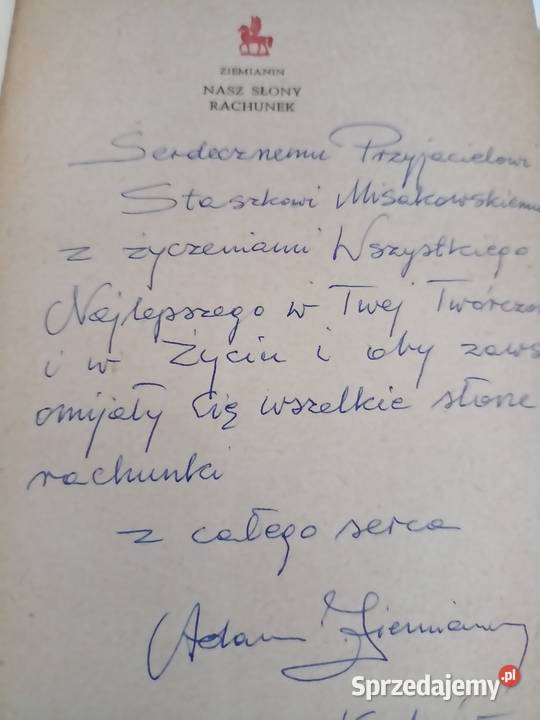 ZIEMIANIN
NASZ SŁONY
RACHUNEK
Serdecznemu Przyjacielowi
Staszkowi Misakowskiemu
z życzeniami Wszystkiego
Najlepszego w Twej Twórcz
i w Życiu i oby zaws
omijały Cię wszelkie słone
rachunki
z całego serca
Adam Ziemianin
Sprzedajemy.pl